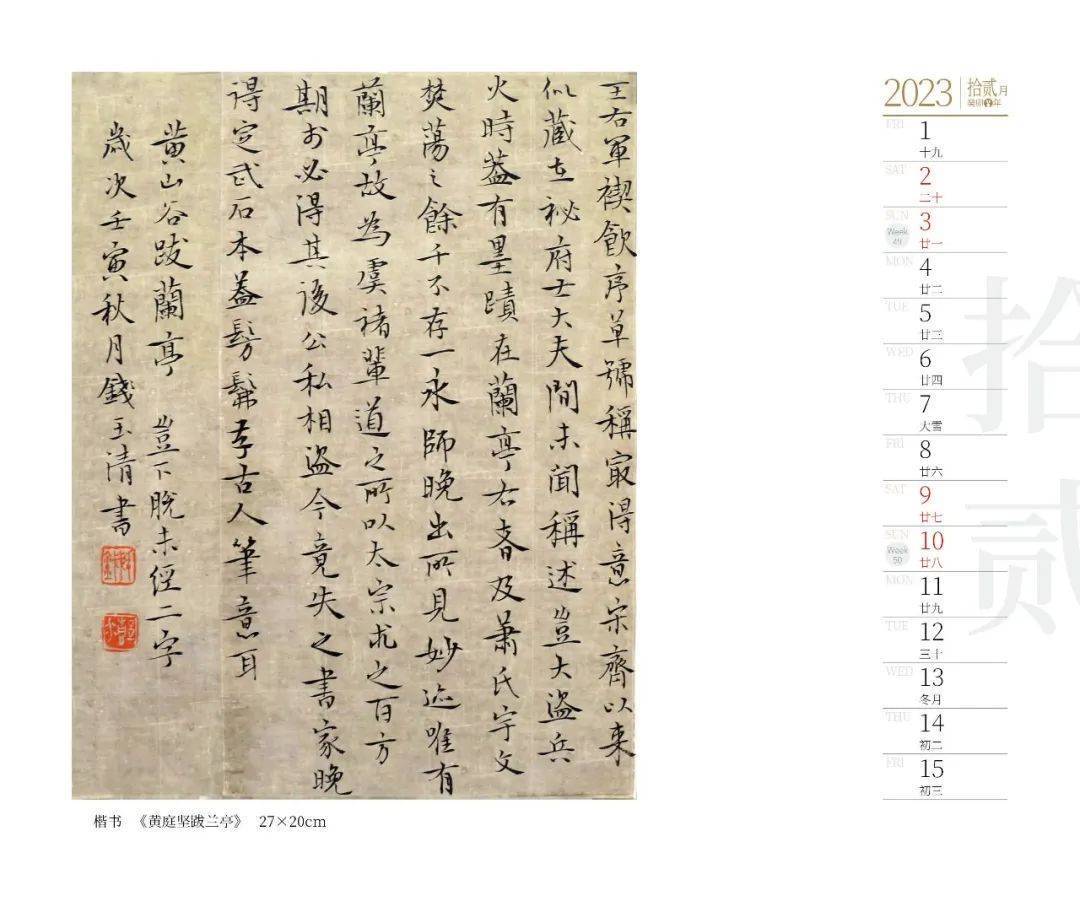 王右軍禊飲序草號稱㝡得意宋齊以来
似藏在祕府士大夫間未聞稱述豈大盜兵
火時蓋有墨蹟在蘭亭右者及蕭氏宇文
焚蕩之餘千不存一永師晚出所見妙迹唯有
蘭亭故為虞褚輩道之所以太宗求之百方
期於必得其後公私相盜今竟失之書家晚
得定武石本蓋髣髴存古人筆意耳
黃山谷跋蘭亭 豈下脫未經二字
歲次壬寅秋月錢玉清書
楷书 《黄庭坚跋兰亭》 27×20cm
2023 拾贰月
癸卯年
FRI 1 十九
SAT 2 二十
SUN 3 廿一
Week 49
MON 4 廿二
TUE 5 廿三
WED 6 廿四
THU 7 大雪
FRI 8 廿六
SAT 9 廿七
SUN 10 廿八
Week 50
MON 11 廿九
TUE 12 三十
WED 13 冬月
THU 14 初二
FRI 15 初三
拾贰